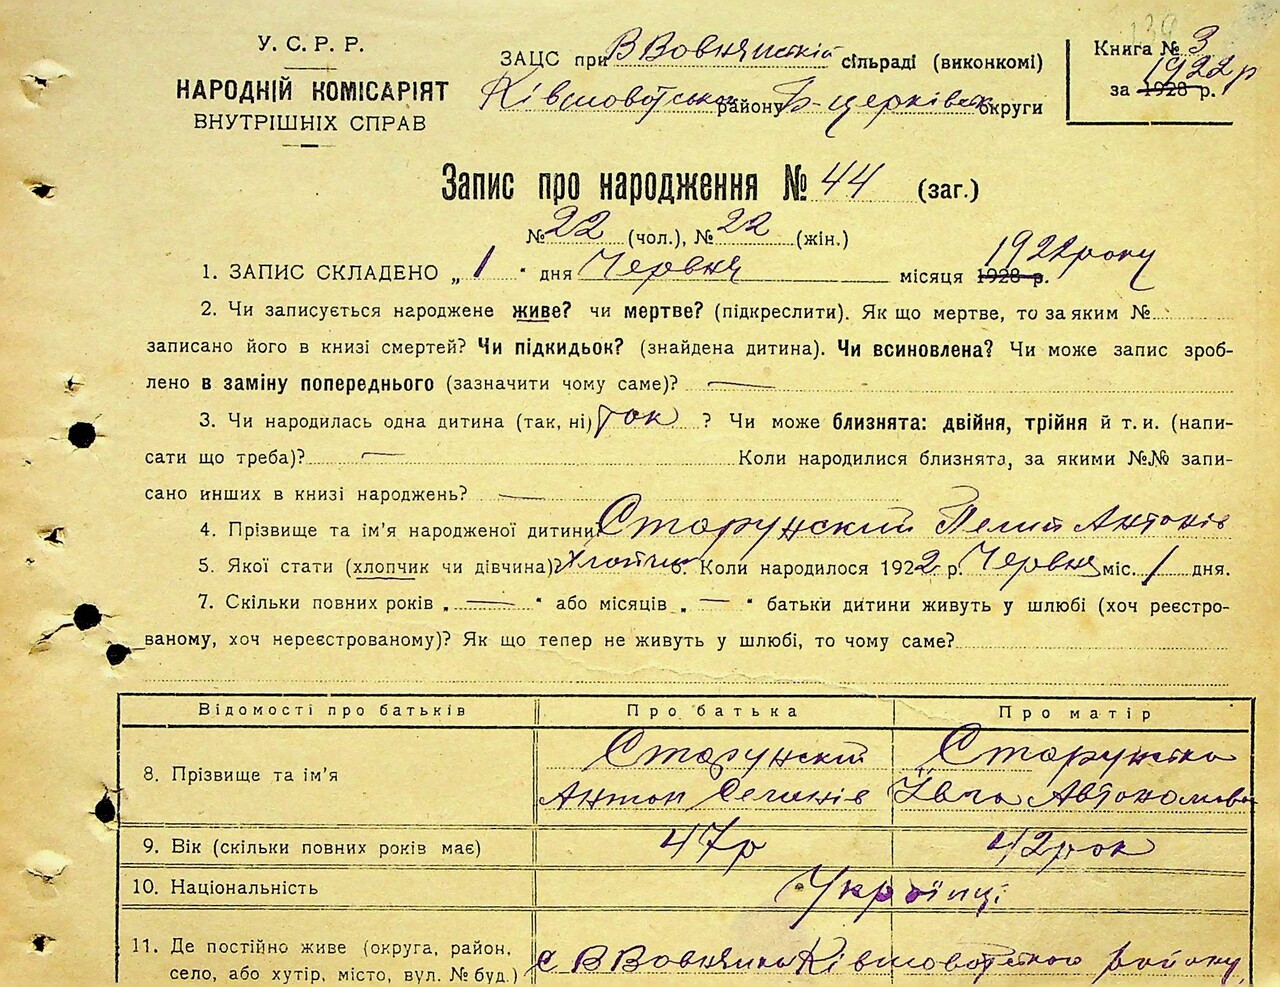 У. С. Р. Р.
НАРОДНІЙ КОМІСАРІЯТ
ВНУТРІШНІХ СПРАВ
ЗАЦС при В Вовнянській сільраді (виконкомі)
Ківшоватського району Б-церківськ округи
Книга № 3
1922 р
за 1928 р.
Запис про народження № 44 (заг.)
№ 22 (чол.), № 22 (жін.)
1. ЗАПИС СКЛАДЕНО „ 1 “ дня Червня місяця 1928 р. 1922 року
2. Чи записується народжене живе? чи мертве? (підкреслити). Як що мертве, то за яким №
записано його в книзі смертей? Чи підкидьок? (знайдена дитина). Чи всиновлена? Чи може запис зроб-
лено в заміну попереднього (зазначити чому саме)? —
3. Чи народилась одна дитина (так, ні) так ? Чи може близнята: двійня, трійня й т. и. (напи-
сати що треба)? — Коли народилися близнята, за якими №№ запи-
сано инших в книзі народжень? —
4. Прізвище та ім'я народженої дитини? Старунский Антонів
5. Якої стати (хлопчик чи дівчина)? Хлопчик 6. Коли народилося 1922 р. Червня міс. 1 дня.
7. Скільки повних років „ — “ або місяців „ — “ батьки дитини живуть у шлюбі (хоч реєстро-
ваному, хоч нереєстрованому)? Як що тепер не живуть у шлюбі, то чому саме?
Відомості про батьків Про батька Про матір
8. Прізвище та ім'я Старунский Старунска
Антон Автономова
9. Вік (скільки повних років має) 47 р 42 рок
10. Національність Українці
11. Де постійно живе (округа, район,
село, або хутір, місто, вул. № буд.) с В Вовнянка Ківшоватського району,